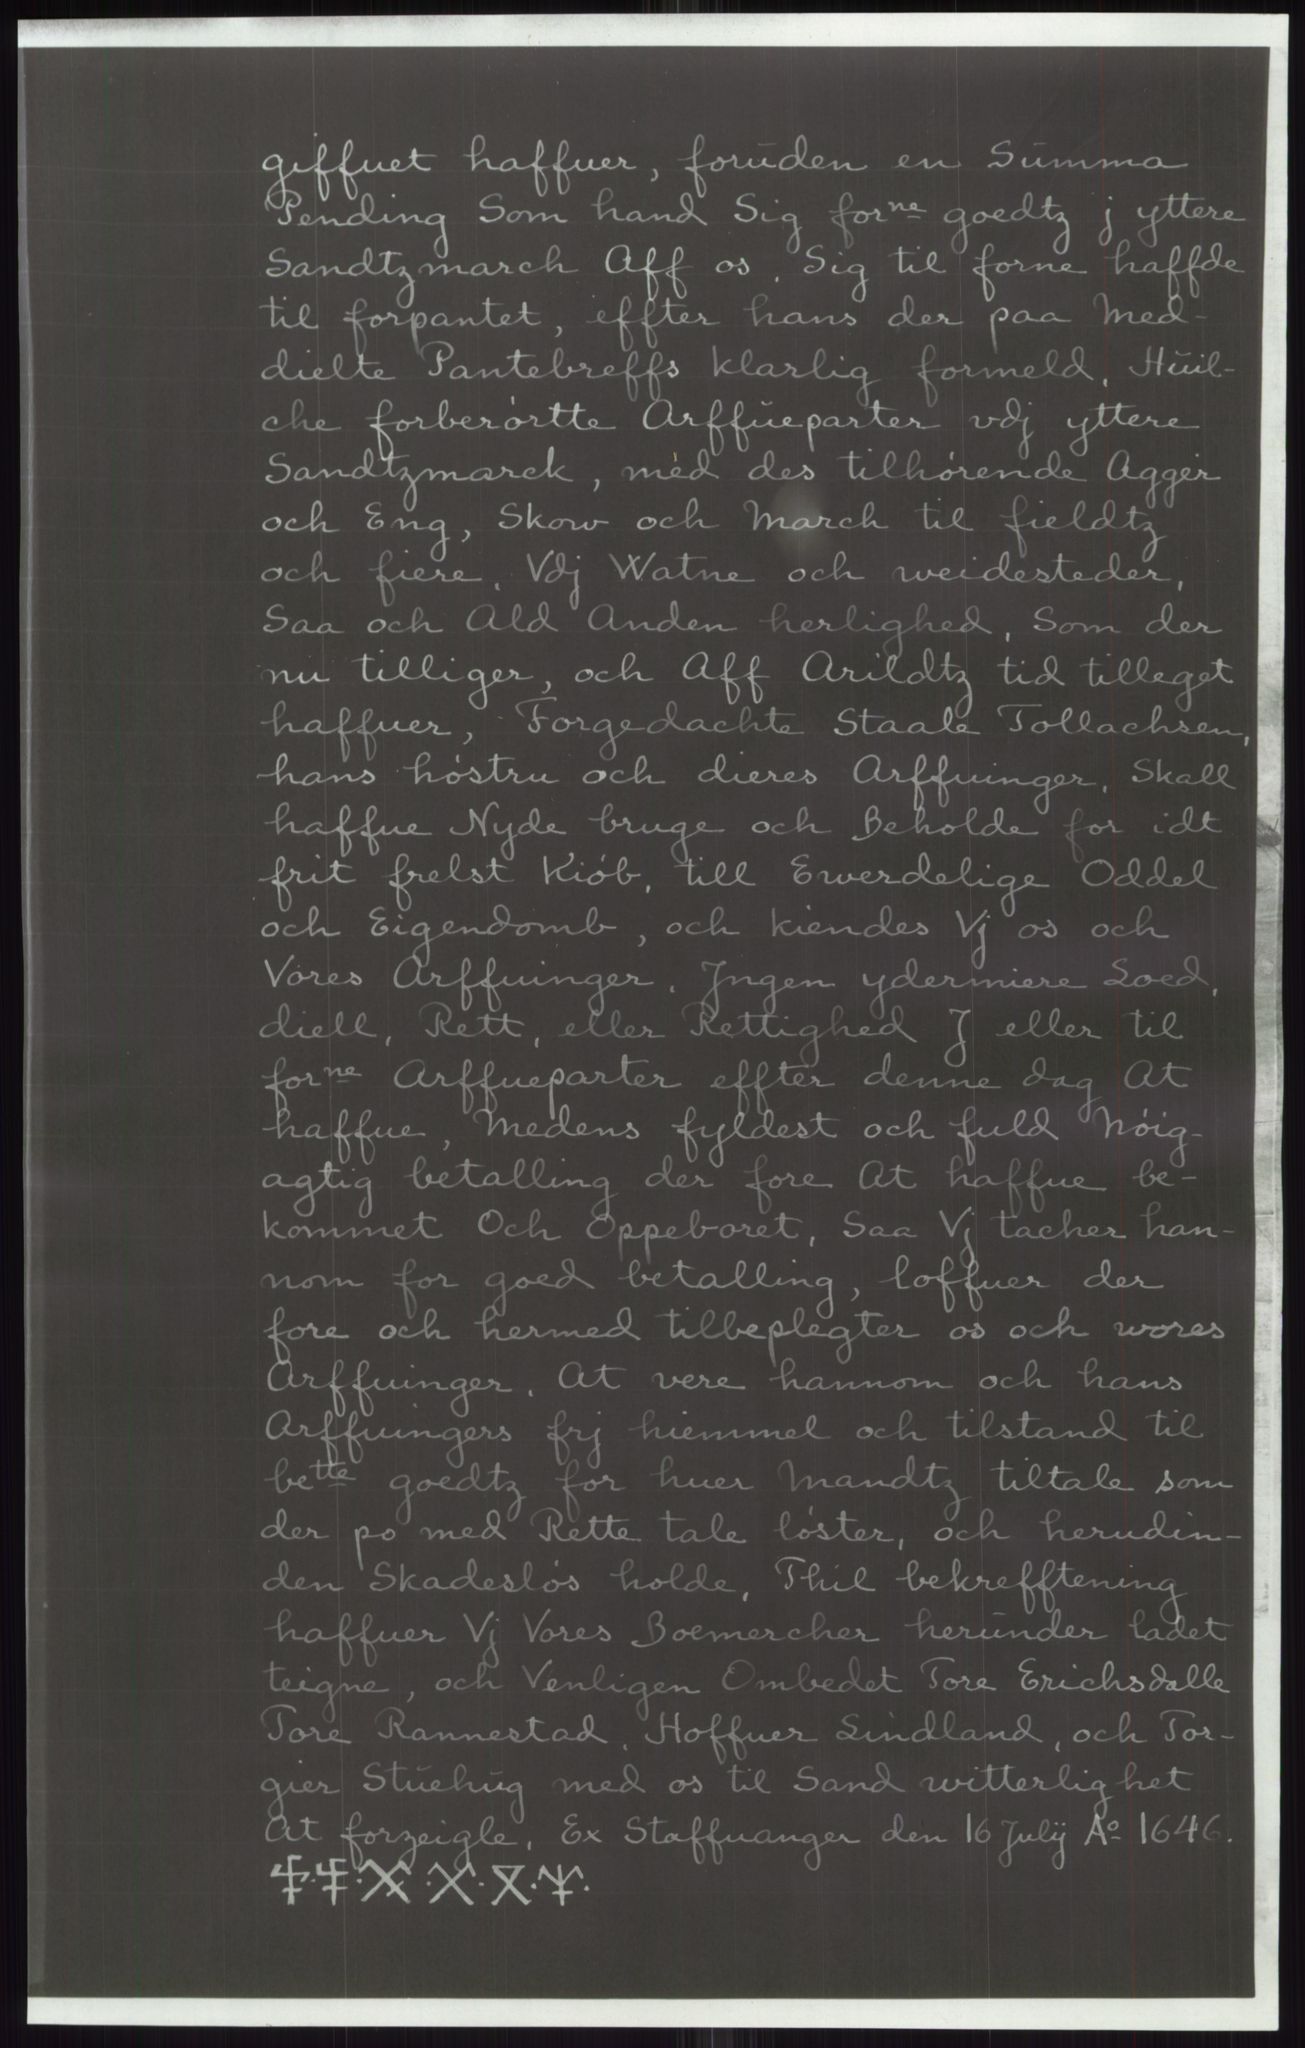 giffuet haffuer, forŭden en Sŭmma
Pending Som hand Sig forne goedtz j yttere
Sandtzmarch Aff os, Sig til forne haffde
til forpantet, effter hans der paa Med-
dielte Pantebreffs klarlig formeld, Hŭil-
che forberórtte Arffŭeparter vdj yttere
Sandtzmarck, med des tilhórende Agger
och Eng, Skow och March til fieldtz
och fiere, Vdj Watne och weidesteder,
Saa och Ald Anden herlighed, Som der
nu tilliger, och Aff Arildtz tid tilleget
haffuer, Forgedachte Staale Tollachsen,
hans hóstru och dieres Arffuinger, Skall
haffue Nyde bruge och Beholde for idt
frit frelst Kiób, till Ewerdelige Oddel
och Eigendomb, och kiendes Vj os och
Vores Arffuinger, Jngen ydermiere Loed,
diell, Rett, eller Rettighed J eller til
forne Arffueparter effter denne dag At
haffue, Medens fyldest och fuld Nóig-
agtig betalling der fore At haffue be-
kommet Och Oppeboret, Saa Vj tacher han-
nom for goed betalling, loffuer der
fore och hermed tilbeplegter os och wores
Arffuinger, At vere hannom och hans
Arffuingers frj hiemmel och tilstand til
bette goedtz for huer Mandtz tiltale som
der po med Rette tale lóster, och herudin-
den Skadeslós holde, Thil bekrefftening
haffuer Vj Vores Boemercher herŭnder ladet
teigne, och Venligen Ombedet Tore Erichsdalle
Tore Rannestad, Hoffuer Lindland, och Tor-
gier Stŭehŭg med os til Sand witterlighet
At forzeigle, Ex Staffuanger den 16 Julij Aº 1646.